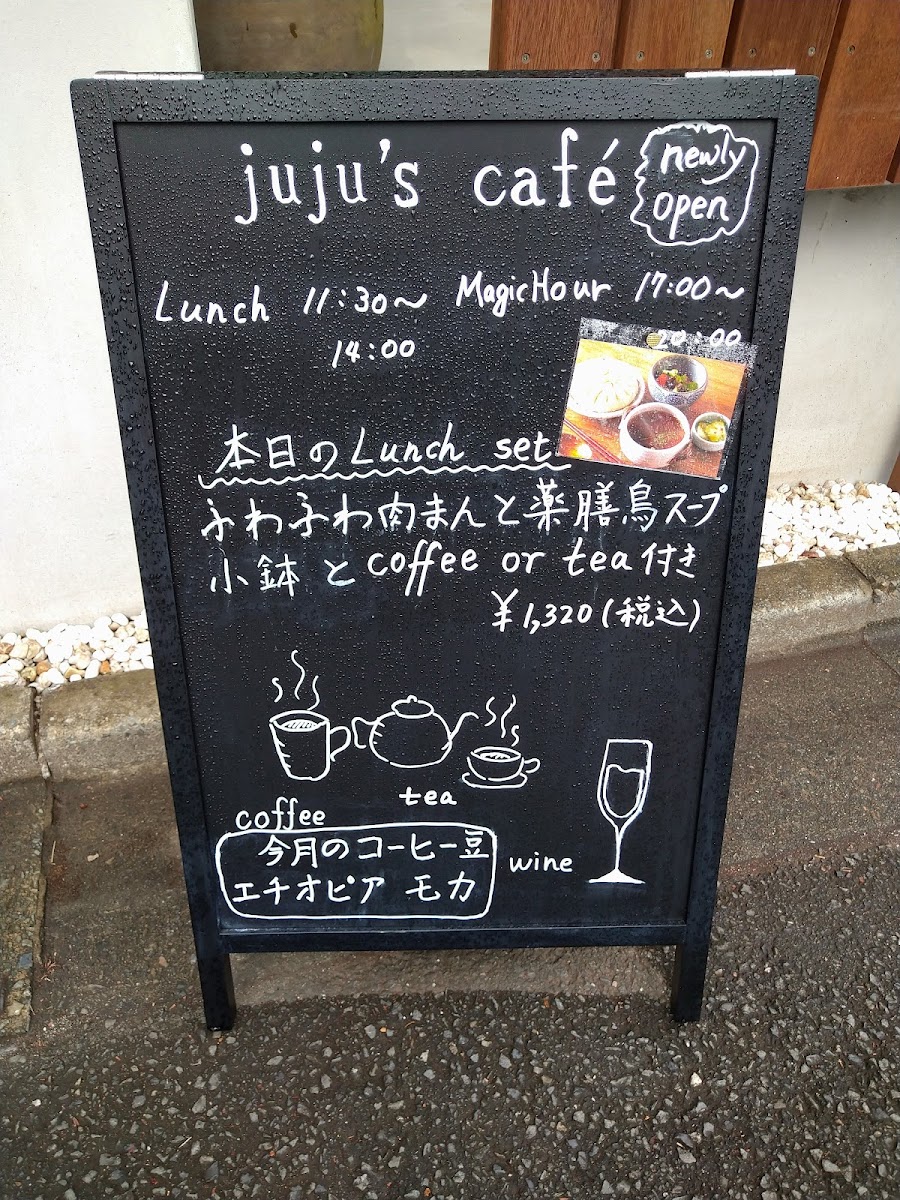 juju's café
newly
open
Lunch 11:30〜
14:00
MagicHour 17:00〜
20:00
本日のLunch set
ふわふわ肉まんと薬膳鳥スープ
小鉢とcoffee or tea付き
¥1,320(税込)
coffee
tea
wine
今月のコーヒー豆
エチオピア モカ